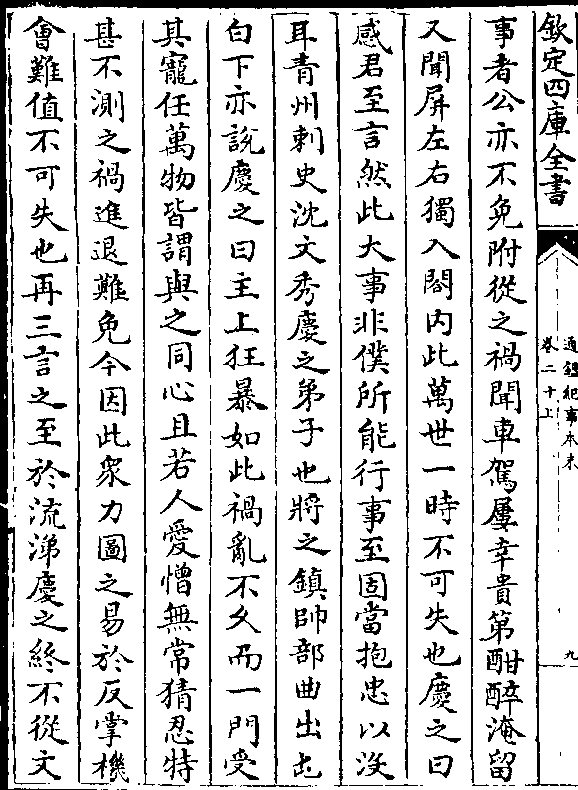 欽定四庫全書
通鑑紀事本末
卷二十上
九
事者公亦不免附從之禍聞車駕屢幸貴第酣醉淹留
又聞屏左右獨入閤内此萬世一時不可失也慶之曰
感君至言然此大事非僕所能行事至固當抱忠以沒
耳青州刺史沈文秀慶之弟子也將之鎮帥部曲出屯
白下亦說慶之曰主上狂暴如此禍亂不久而一門受
其寵任萬物皆謂與之同心且若人愛憎無常猜忍特
甚不測之禍進退難免今因此衆力圖之易於反掌機
會難值不可失也再三言之至於流涕慶之終不從文